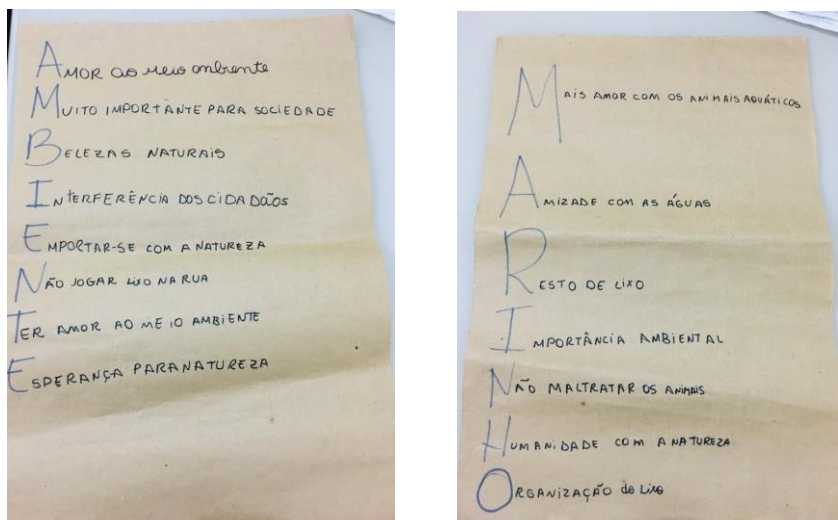 AMOR ao meio ambiente
MUITO IMPORTANTE PARA SOCIEDADE
BELEZAS NATURAIS
INTERFERÊNCIA DOS CIDADãOS
EMPORTAR-SE COM A NATUREZA
NÃO JOGAR LIXO NA RUA
TER AMOR AO MEIO AMBIENTE
ESPERANÇA PARA NATUREZA
MAIS AMOR COM OS ANIMAIS AQUÁTICOS
AMIZADE COM AS ÁGUAS
RESTO DE LIXO
IMPORTÂNCIA AMBIENTAL
NÃO MALTRATAR OS ANIMAIS
HUMANIDADE COM A NATUREZA
ORGANIZAÇÃO do Lixo